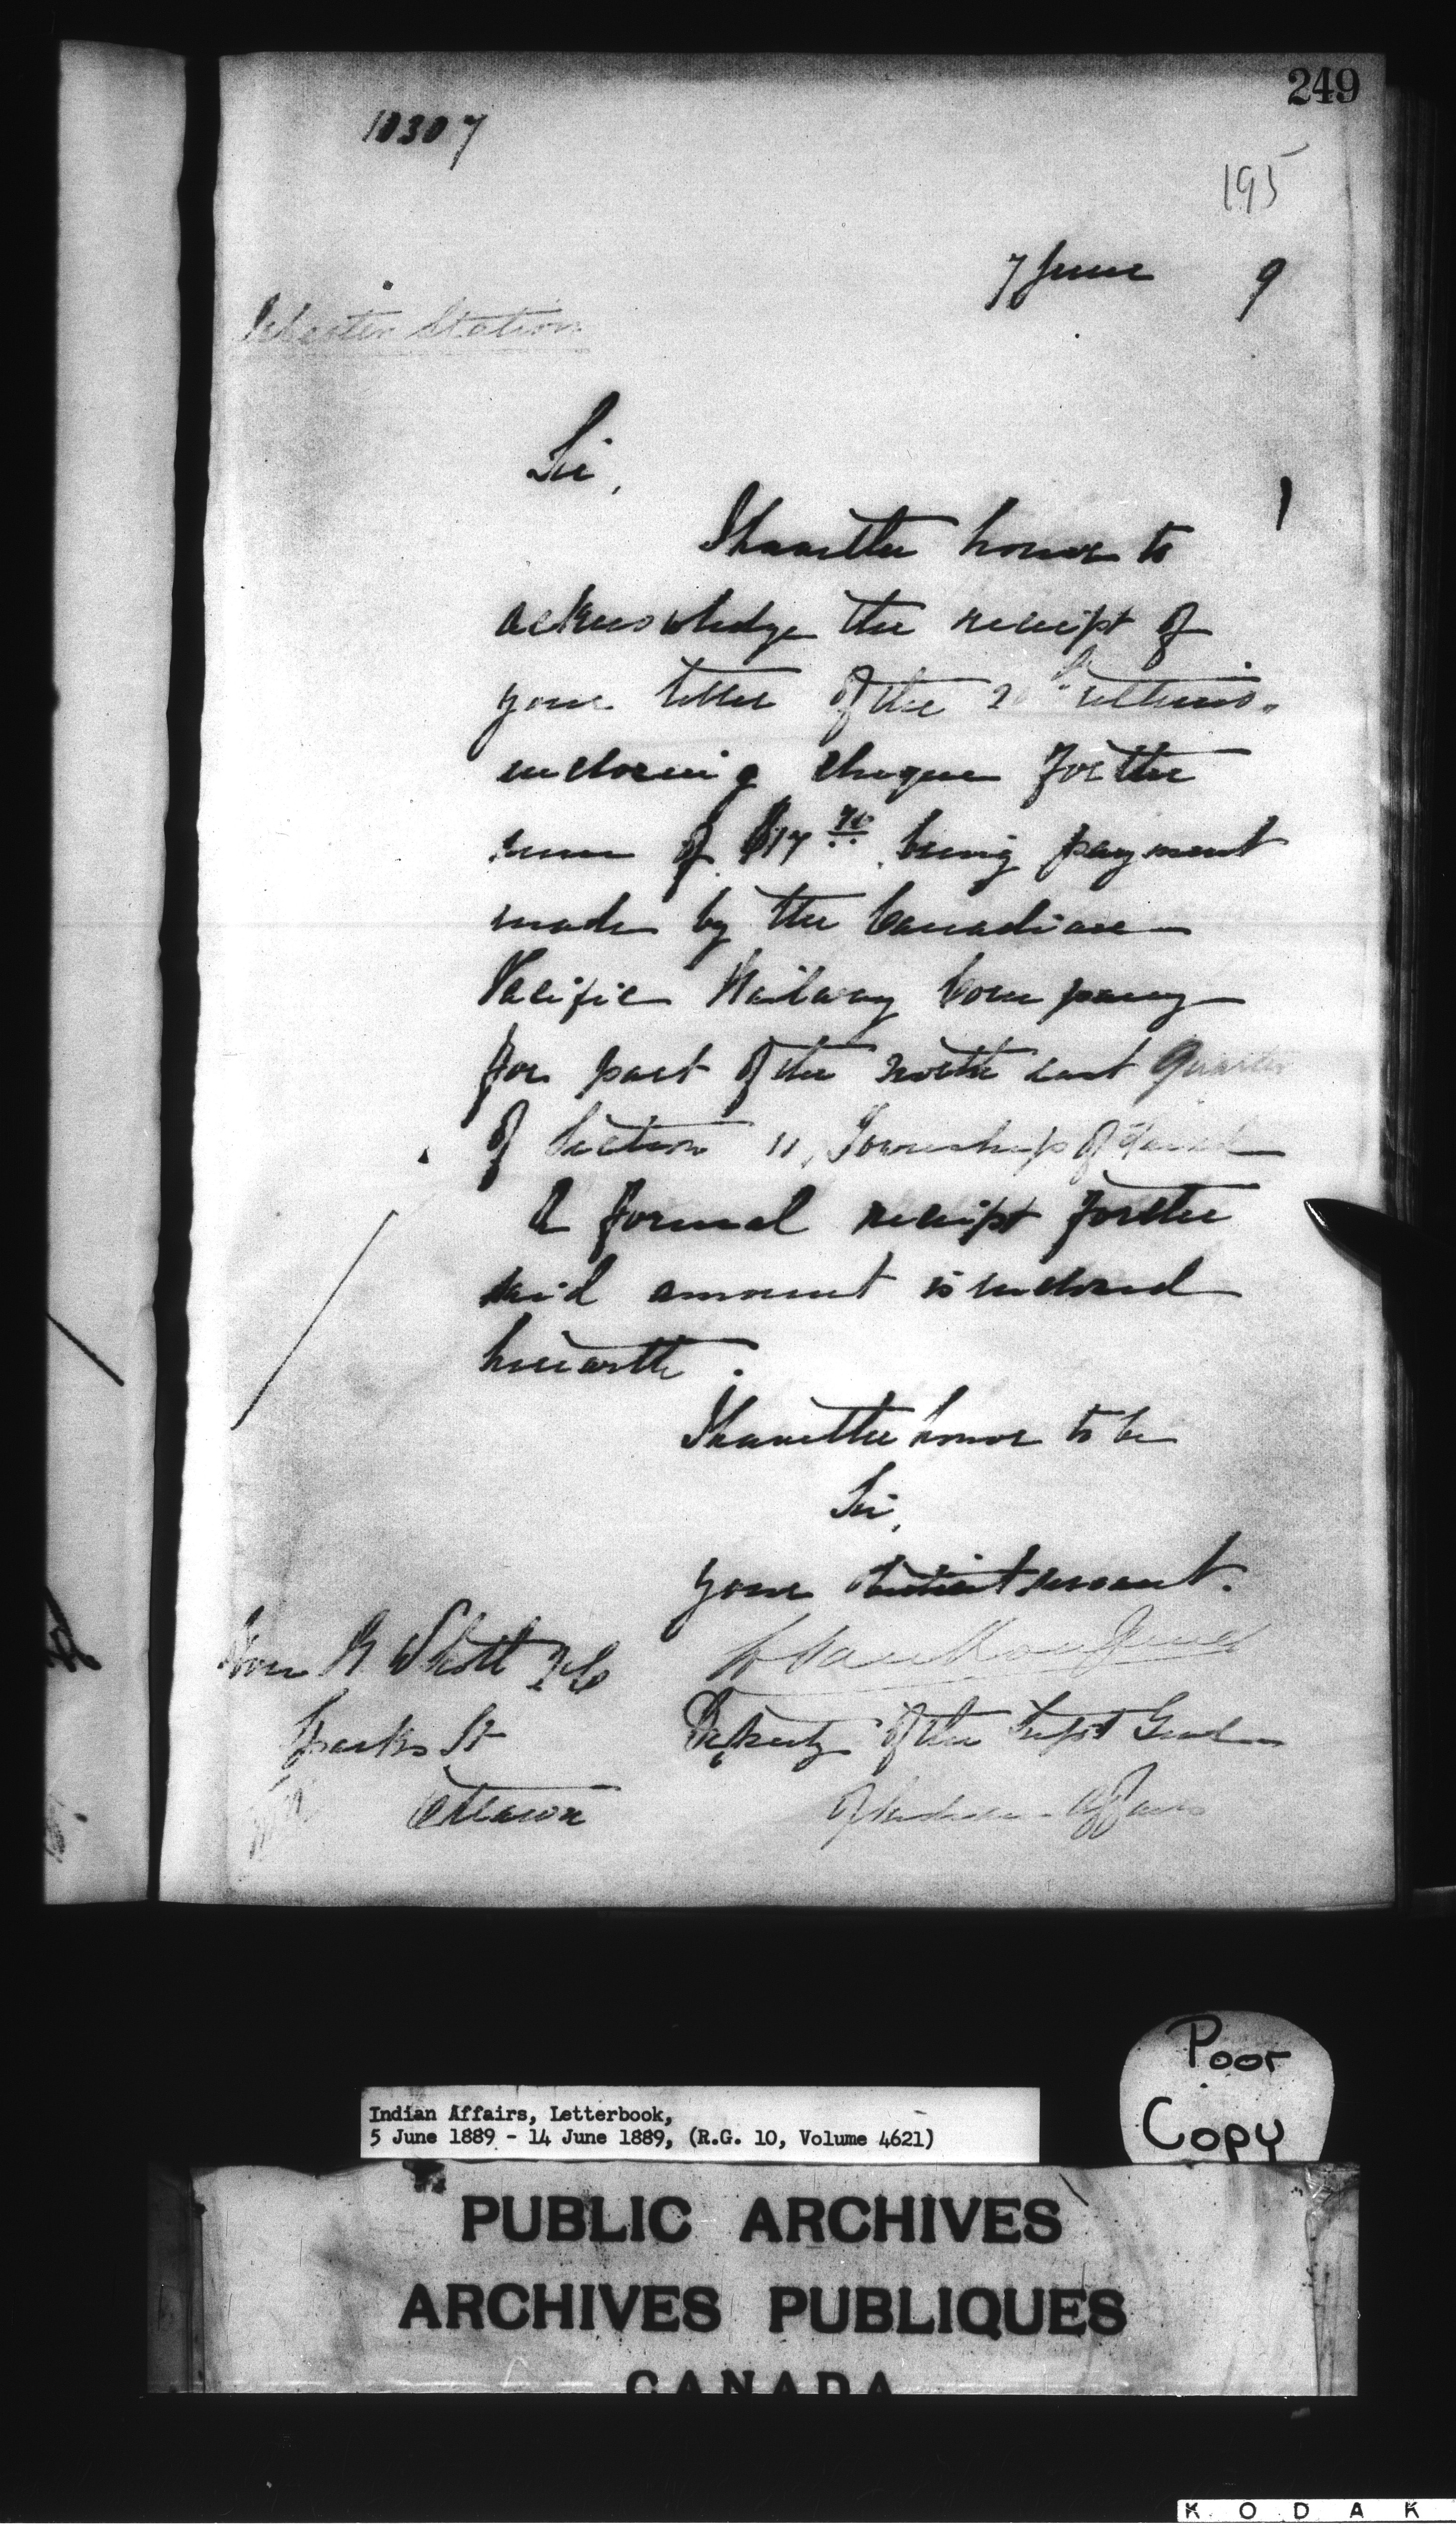 249
10307
195
7 June 9
Station
Sir,
I have the honor to
acknowledge the receipt of
your letter of the 20th ultimo.
enclosing cheque for the
sum of $17 70 being payment
made by the Canadian
Pacific Railway Company
for part of the north east Quarter
of Section 11, Township of
A formal receipt for the
said amount is enclosed
herewith.
I have the honor to be
Sir,
your obedient servant.
Hon R W Scott QC
L. Vankoughnet
Sparks St
Deputy of the Supt Genl
Ottawa
of Indian Affairs
Poor
Copy
Indian Affairs, Letterbook,
5 June 1889 - 14 June 1889, (R.G. 10, Volume 4621)
PUBLIC ARCHIVES
ARCHIVES PUBLIQUES
CANADA
KODAK